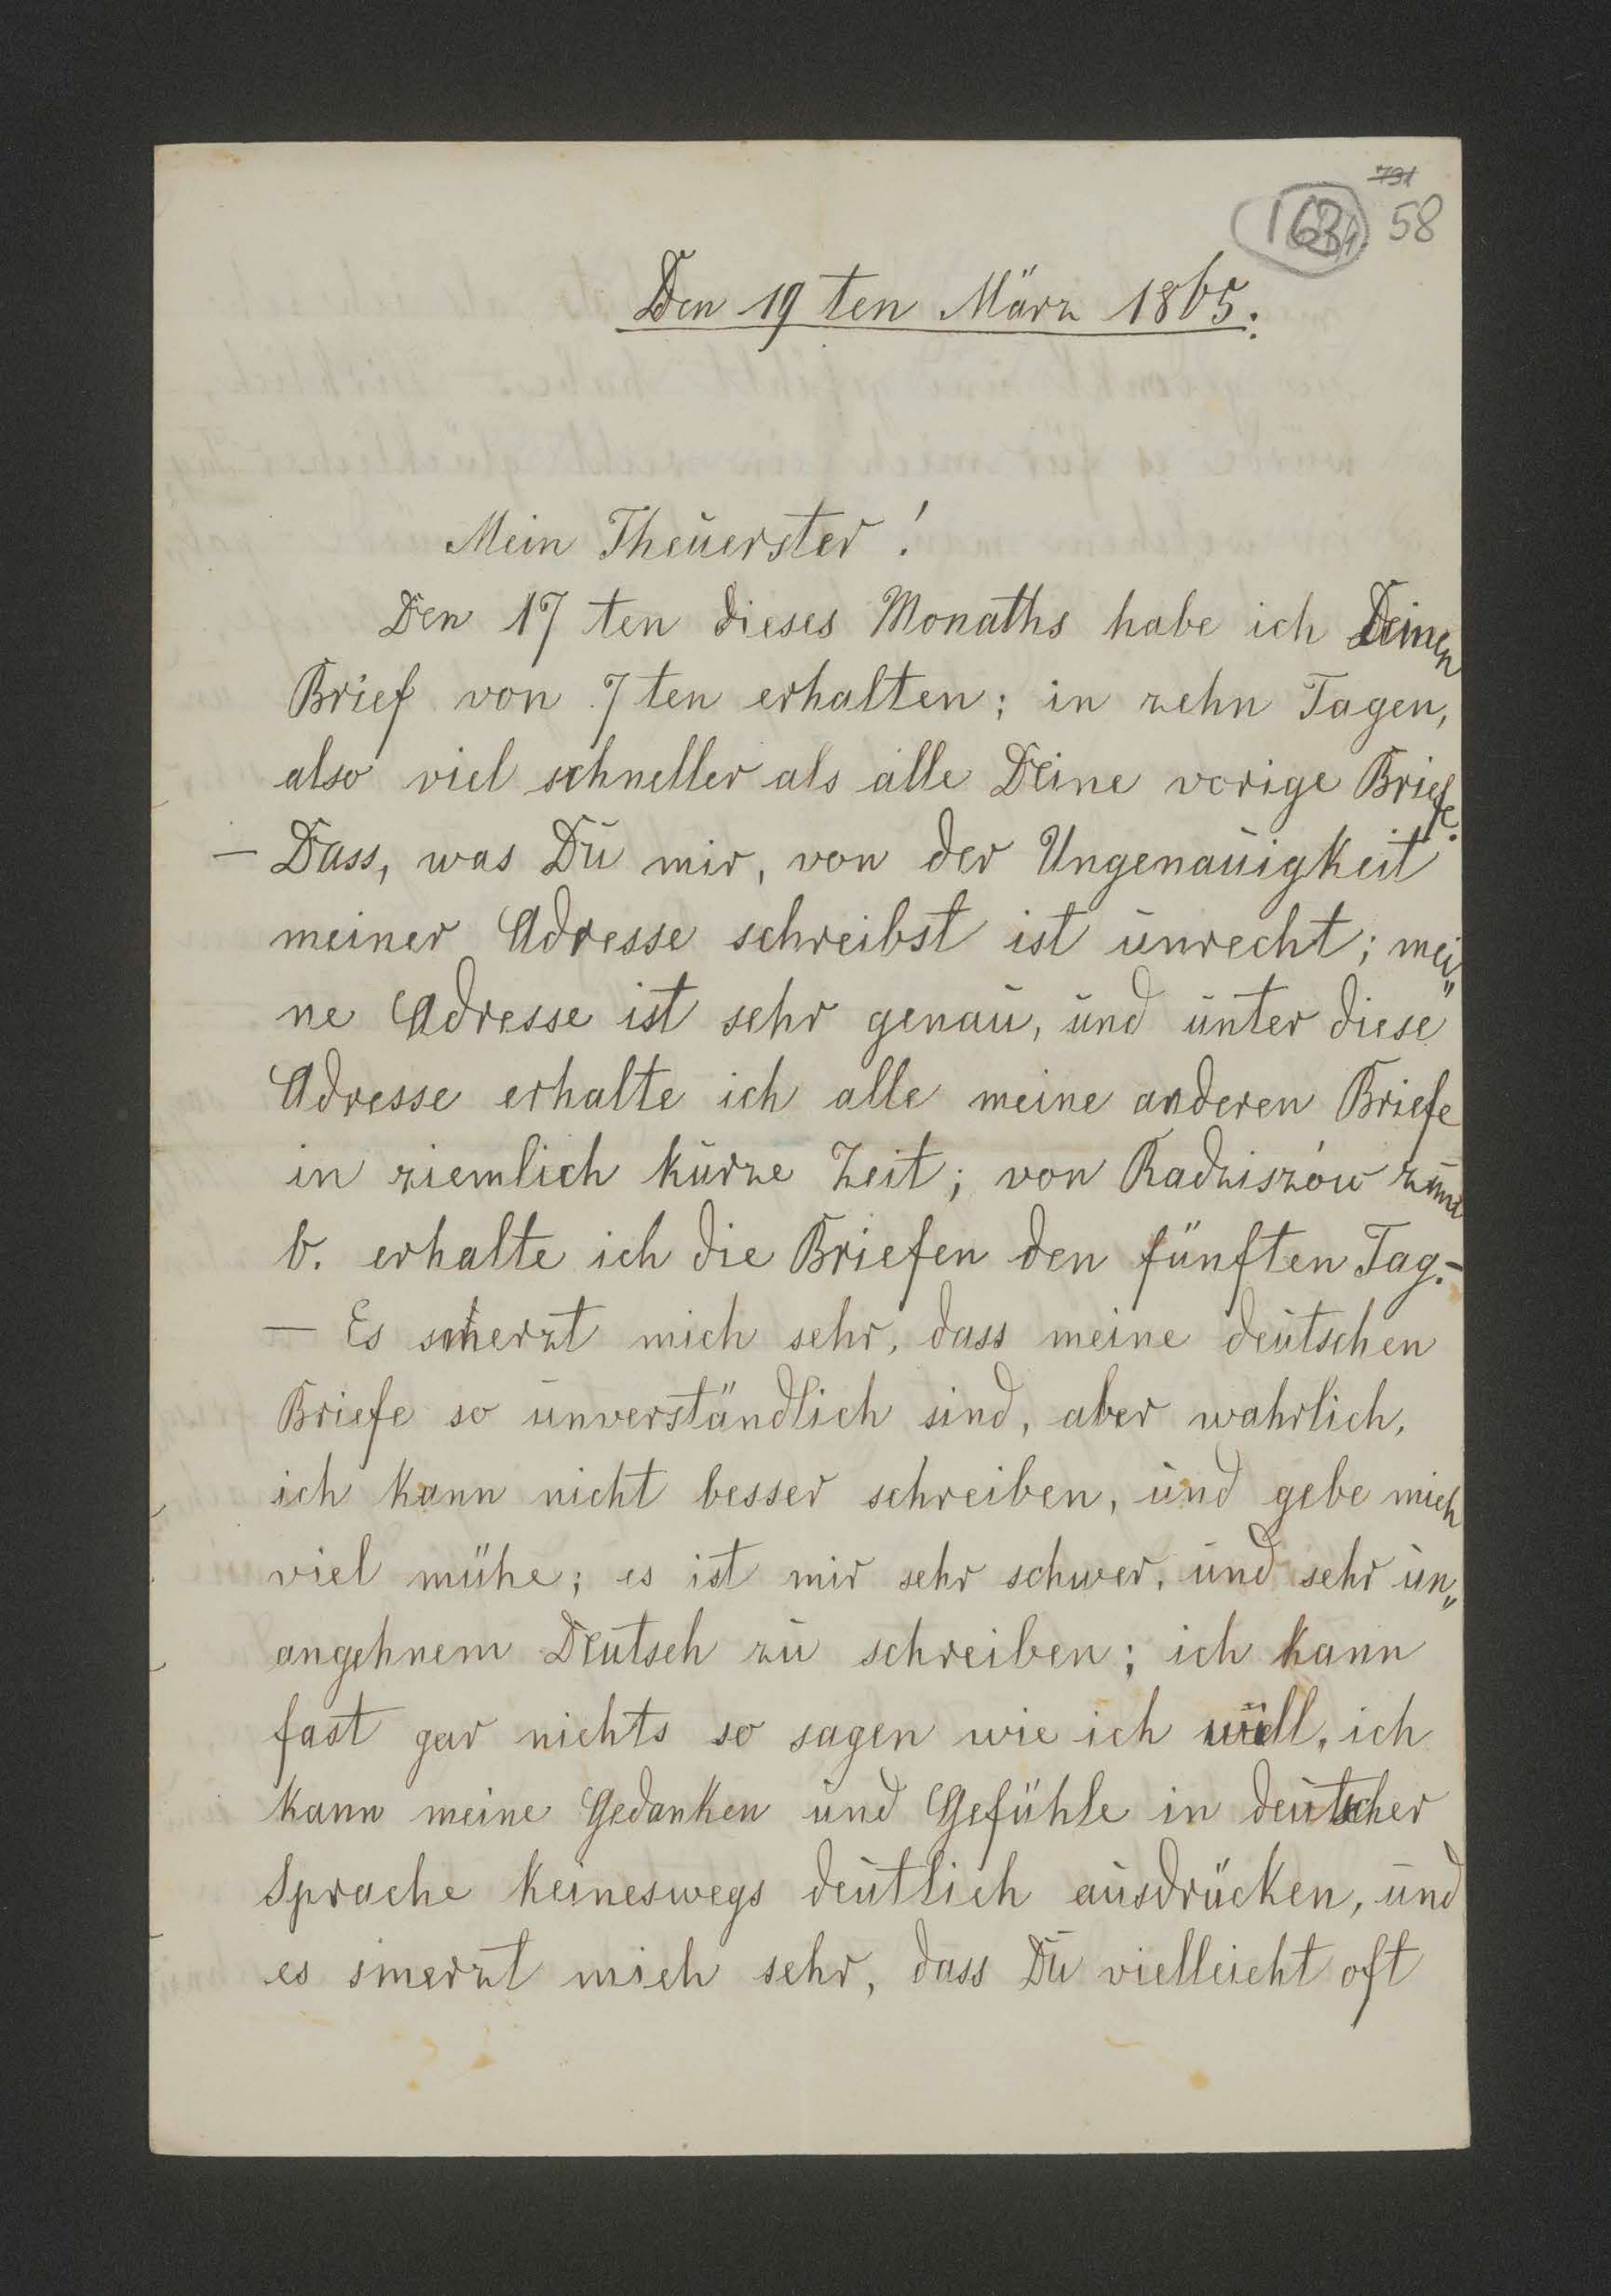 58
Den 19 ten März 1865.
Mein Theuerster!
Den 17 ten dieses Monaths habe ich Deinen
Brief von 7 ten erhalten; in zehn Tagen,
also viel schneller als alle Deine vorige Briefe.
— Dass, was Du mir, von der Ungenauigkeit
meiner Adresse schreibst ist unrecht; mei„
ne Adresse ist sehr genau, und unter diese
Adresse erhalte ich alle meine anderen Briefe
in ziemlich kurze Zeit; von Radziszów zum
b. erhalte ich die Briefen den fünften Tag.–
— Es smerzt mich sehr, dass meine deutschen
Briefe so unverständlich sind, aber wahrlich,
ich kann nicht besser schreiben, und gebe mich
viel mühe; es ist mir sehr schwer, und sehr un„
angehnem Deutsch zu schreiben; ich kann
fast gar nichts so sagen wie ich will, ich
kann meine Gedanken und Gefühle in deutscher
Sprache keineswegs deutlich ausdrücken, und
es smerzt mich sehr, dass Du vielleicht oft